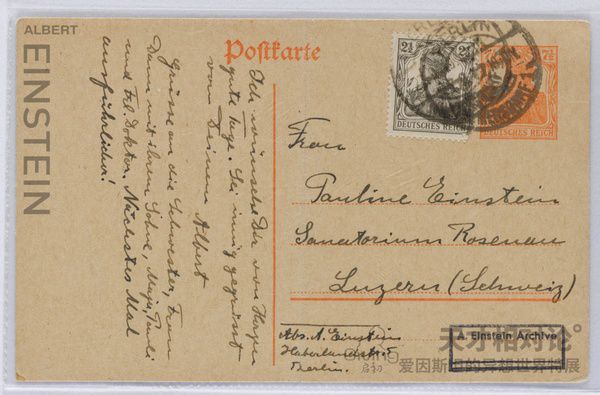 ALBERT
EINSTEIN
Postkarte
2½ 2½
DEUTSCHES REICH
7½
DEUTSCHES REICH
BERLIN
WILMERSDORF 1
Ich wünsche Dir von Herzen
gute Tage. Sei innig gegrüsst
von Deinem Albert
Grüsse an die Schwester, Frau
mit ihrem Sohne, Maja, Pauli
und Frl. Doktor. Nächstes Mal
ausführlicher!
Frau
Pauline Einstein
Sanatorium Rosenau
Luzern (Schweiz)
Abs. A. Einstein
Haberlandstr. 5
Berlin.
A. Einstein Archive
天才相对论
爱因斯坦的异想世界特展